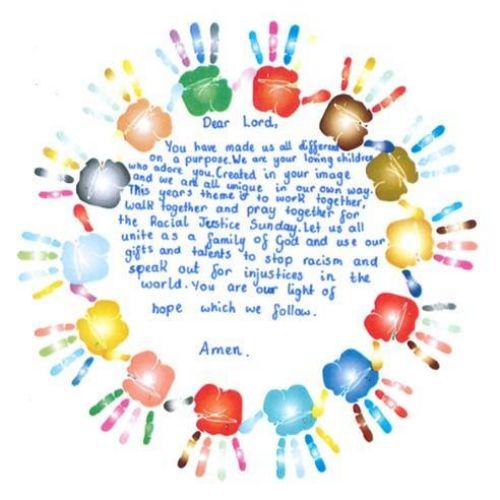 Dear Lord,
You have made us all different
on a purpose. We are your loving children
who adore you. Created in your image
and we are all unique in our own way.
This years theme is to work together,
walk together and pray together for
the Racial Justice Sunday. Let us all
unite as a family of God and use our
gifts and talents to stop racism and
speak out for injustices in the
world. You are our light of
hope which we follow.
Amen.